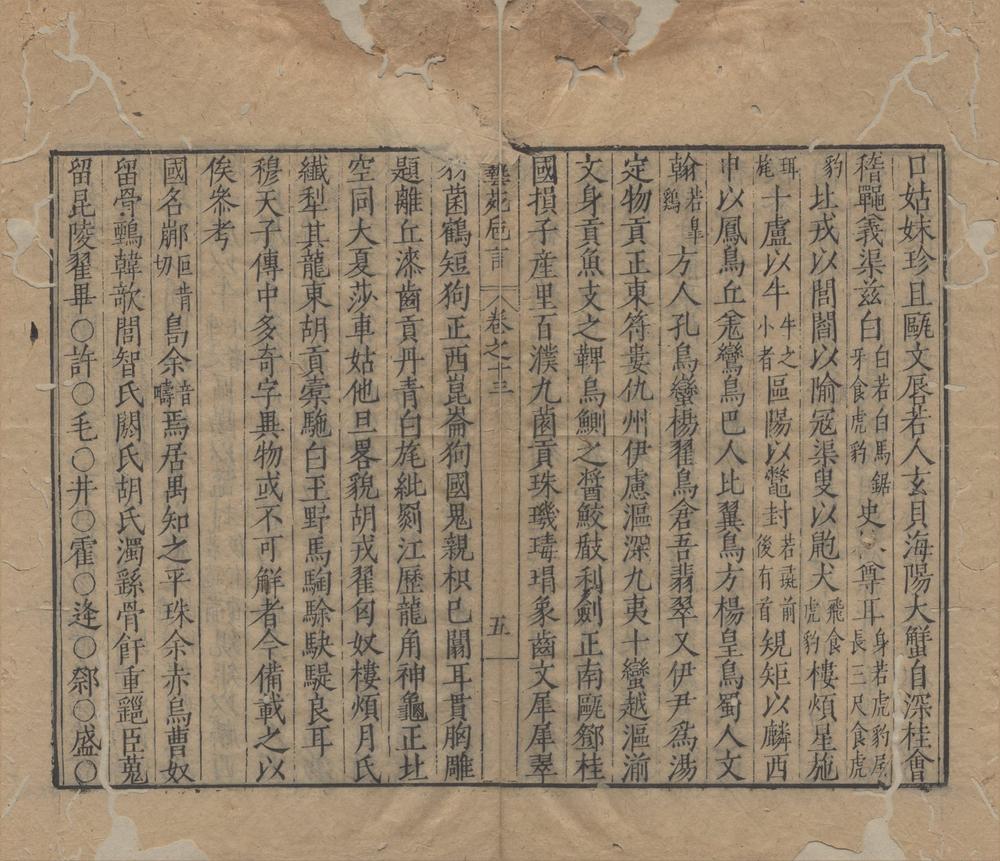 口姑妹珍且甌文蜃若人玄貝海陽大蟹自深桂會
稽鼆義渠茲白白若白馬鋸牙食虎豹史尊耳身若虎豹尾長三尺食虎
豹北戎以閭閻以隃冦渠叟以䶂犬飛食虎豹樓煩星施
珥旄十盧以牛牛之小者區陽以鼈封若彘前後有首規矩以麟西
申以鳳鳥丘羌鸞鳥巴人比翼鳥方楊皇鳥蜀人文
翰若臯鷄方人孔鳥蠻楊翟鳥倉吾翡翠又伊尹爲湯
定物貢正東符婁仇州伊慮漚深九夷十蠻越漚湔
文身貢魚支之鞞烏鰂之醬鮫瞂利劍正南甌鄧桂
國損子産里百濮九菌貢珠璣瑇瑁象齒文犀犀翠
藝苑巵言 卷之十三 五
羽菌鶴短狗正西崑崙狗國鬼親枳已闟耳貫胸雕
題離丘漆齒貢丹青白旄紕罽江歷龍角神龜正北
空同大夏莎車姑他旦畧貌胡戎翟匈奴樓煩月氏
纎犁其龍東胡貢橐駞白玉野馬騊駼駃騠良耳
穆天子傳中多奇字異物或不可觧者今備載之以
俟叅考
國名䣙叵肯切鳥余音疇焉居禺知之平珠余赤烏曹奴
留骨鷬韓歌閭智氏閼氏胡氏濁繇骨飦重䣛臣䓯
留昆陵翟畢○許○毛○井○霍○逄○郳○盛○